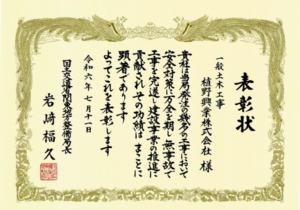 表彰状
一般土木工事
植野興業株式会社 様
貴社は当局発注の幾多の工事において
安全対策に万全を期し無事故で
工事を完遂し建設事業の推進に
貢献されその功績はまことに
顕著であります
よってこれを表彰します
令和六年七月十一日
国土交通省関東地方整備局長
岩﨑福久